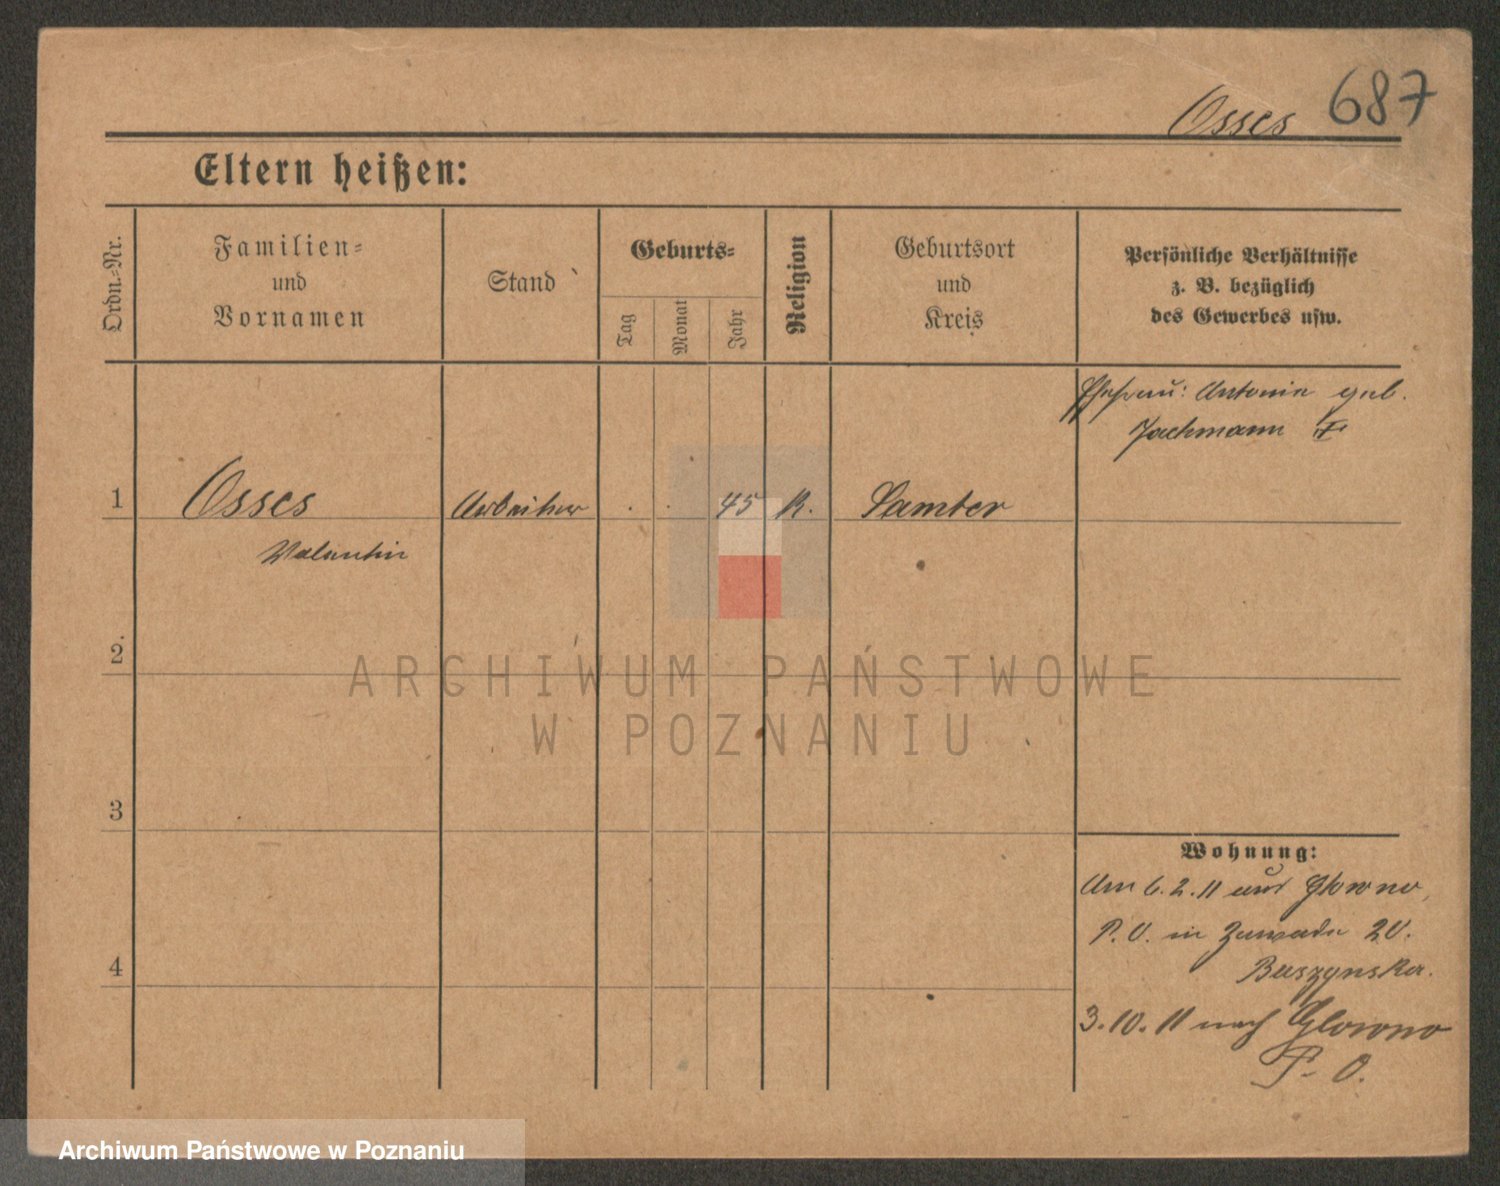 Osses 687
Eltern heißen:
Ordn.-Nr.
Familien-
und
Vornamen
Stand
Geburts-
Tag
Monat
Jahr
Religion
Geburtsort
und
Kreis
Persönliche Verhältnisse
z. B. bezüglich
des Gewerbes usw.
Ehefrau: Antonie geb.
Jachmann
1 Osses Arbeiter . . 45 K. Samter
Valentin
2
3
4
Wohnung:
Am 6.2.11 aus Glowno,
P. O. in Zawade 20.
Buszynska.
3.10.11 nach Glowno
P. O.
ARCHIWUM PAŃSTWOWE
W POZNANIU
Archiwum Państwowe w Poznaniu